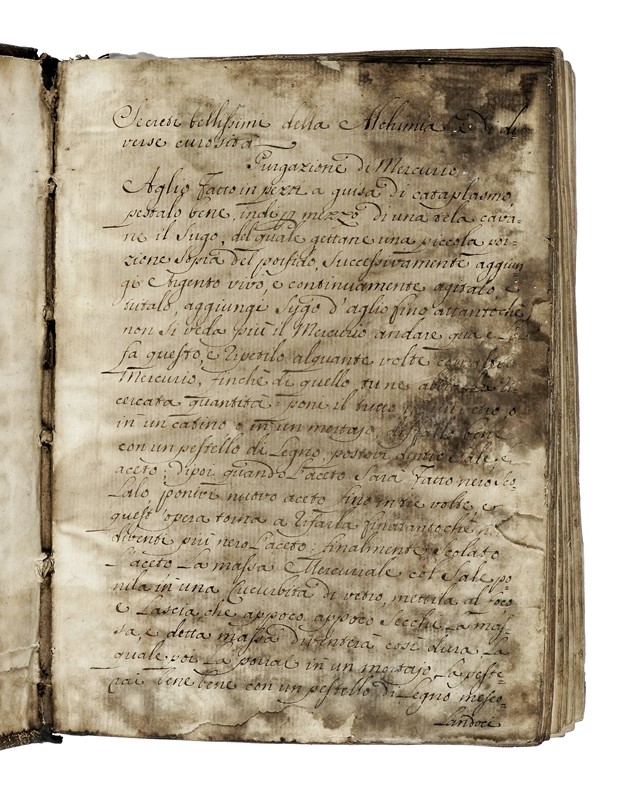 Secreti bellissimi della Alchimia e di di
verse curiosità
Purgazione di Mercurio
Aglio Fatto in pezzi a guisa di cataplasmo,
pestalo bene, indi in mezzo di una tela cava=
ne il Sugo, del quale gettane una piccola por=
zione sopra del porfido, Successivamente aggiun
gi Argento vivo, e continuamente agitalo, e
tritalo, aggiungi Sugo d'aglio fino attantoche
non Si veda più il Mercurio andare qua e
fa questo, e Ripetilo alquante volte con altro
Mercurio, finchè di quello tu ne
cercata quantità poni il tutto o
in un catino o in un mortajo bene
con un pestello di Legno, postovi dentro Sale e
aceto; dipoi quando L'aceto Sarà Fatto nero Sco=
Lalo, ponivi nuovo aceto fino in tre volte, e
quest'opera torna a Rifarla finatantochè
divente più nero L'aceto; finalmente Scolato
L'aceto La massa Mercuriale col Sale po=
nila in una Cucurbita di vetro, mettila al foco
e Lascia che appoco appoco Secchi La mas=
sa, e detta massa diventerà così dura La
quale poi La porrai in un mortajo, La peste=
rai bene bene con un pestello di Legno mesco=
Landoci